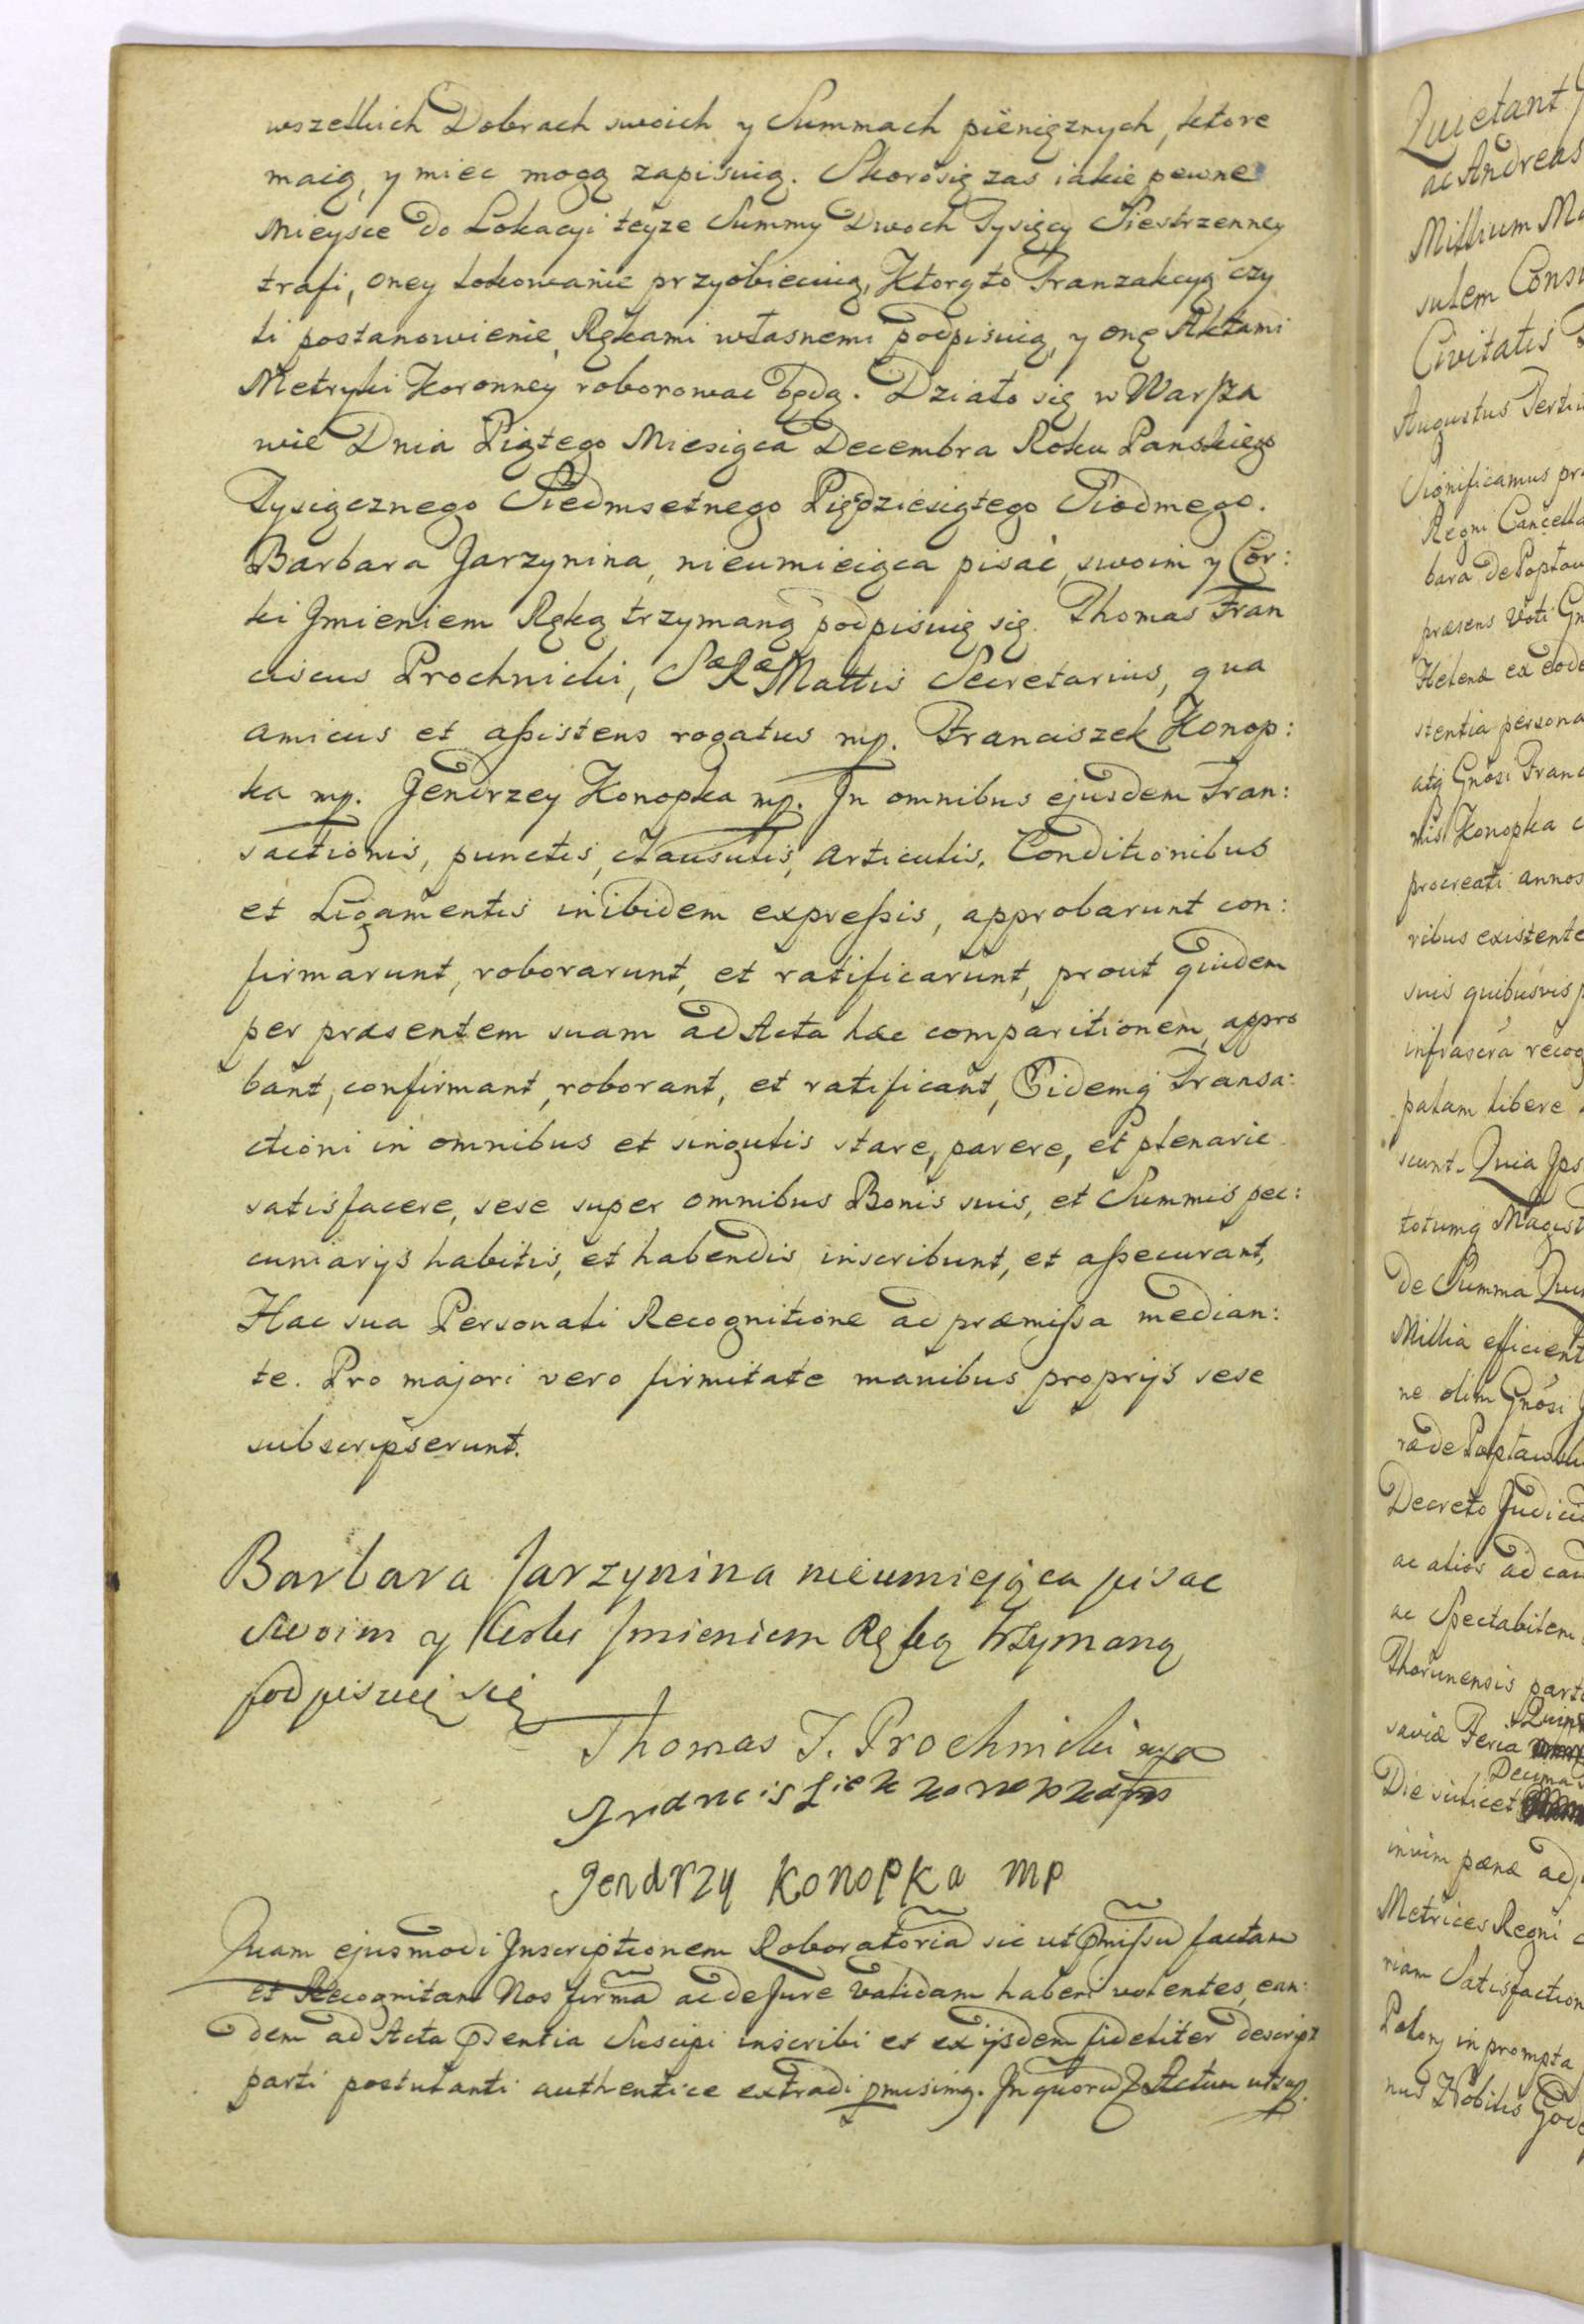 wszelkich Dobrach swoich y Summach pienięznych, ktore
maią, y miec mogą zapisuią. Skorosię zas iakie pewne
Mieysce do Lokacyi teyze Summy Dwoch Tysięcy Siestrzenney
trafi, oney Lokowanie przyobiecuią, Ktorąto Tranzakcyą czy
li postanowienie, Rękami własnemi podpisuią, y onę Aktami
Metryki Koronney roborowac będą. Działo się w Warsza
wie Dnia Piątego Miesiąca Decembra Roku Panskiego
Tysiącznego Siedmsetnego Pięcdziesiątego Siodmego.
Barbara Jarzynina, nieumieiąca pisać, swoim y Cor:
ki Jmieniem Ręką trzymaną podpisuię się. Thomas Fran
ciscus Prochnicki, Sæ Ræ Mattis Secretarius, qua
amicus et assistens rogatus mp. Franciszek Konop:
ka mp. Jendrzey Konopka mp. Jn omnibus ejusdem Tran:
sactionis, punctis, clausulis, articulis, Conditionibus
et Ligamentis inibidem expressis, approbarunt con:
firmarunt, roborarunt, et ratificarunt, prout quidem
per præsentem suam ad Acta hæc comparitionem, appro
bant, confirmant, roborant, et ratificant, Eidemq Transa:
ctioni in omnibus et singulis stare, parere, et plenarie
satisfacere, sese super omnibus Bonis suis, et Summis pec:
cuniarijs habitis, et habendis inscribunt, et assecurant,
Hac sua Personali Recognitione ad præmissa median:
te. Pro majori vero firmitate manibus proprijs sese
subscripserunt.
Barbara Jarzynina nieumiejąca pisac
swoim y Corki Jmieniem Ręką trzymaną
podpisuię się
Thomas F. Prochnicki mpa
Franciszek Konopka mp
Jendrzy Konopka mp
Quam ejusmodi Jnscriptionem Roboratoria sic ut pmissu factam
et Recognitam Nos firma ac de Jure validam haberi volentes, ean:
dem ad Acta psentia Suscipi inscribi et ex ijsdem fideliter descript
parti postulanti authentice extradi pmisimq. Jn quoru Actum ut sup.
Quietant
ac Andreas
Millium
sulem Cons
Civitatis
Augustus Terti
Significamus pr
Regni Cancella
bara de Popław
præsens Voti
Helenæ ex eode
stentia persona
atq Gnosi Franc
nis Konopka
procreati annos
ribus existente
suis quibusvis
infrascra recog
palam libere
scunt. Quia Jps
totumq Magist
de Summa
Millia efficient
ne olim Gnosi
ra de Popławsk
Decreto Judici
ac alios ad cau
ac Spectabilem
Thorunensis part
Quint
savia Feria
Decima
Die scilicet
invim pænæ ad
Metrices Regni
riam Satisfaction
Polon in prompta
nus Nobilis God